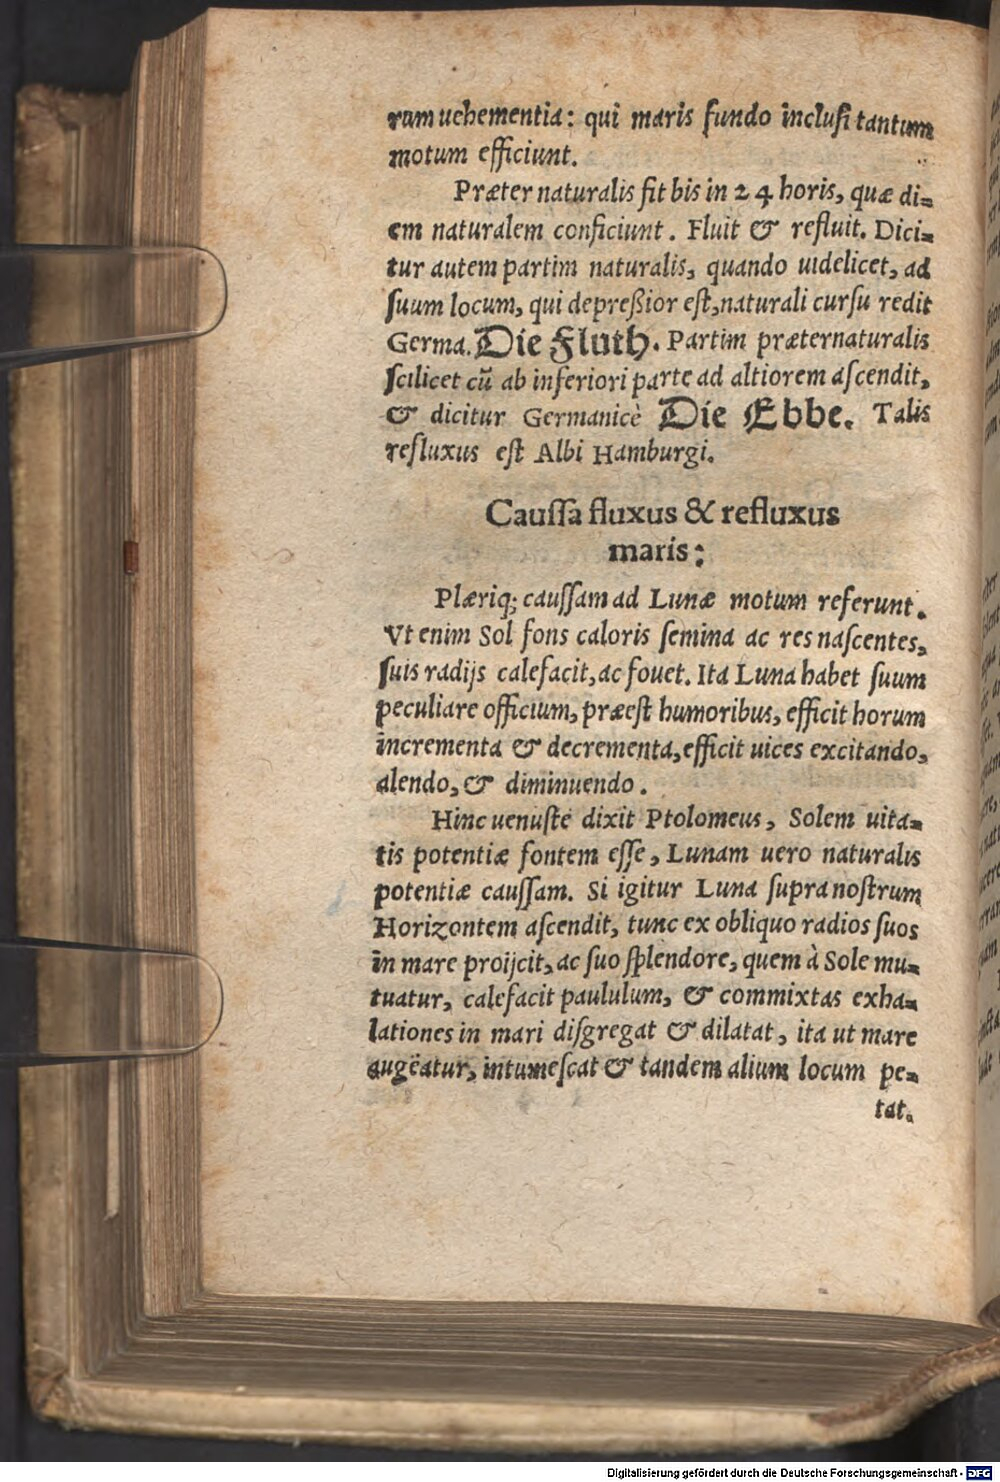 rum uehementia: qui maris fundo inclusi tantum
motum efficiunt.
Præter naturalis fit bis in 24 horis, quæ di=
em naturalem conficiunt. Fluit & refluit. Dici=
tur autem partim naturalis, quando uidelicet, ad
ſuum locum, qui depreßior eſt, naturali curſu redit
Germa. Die Fluth. Partim præternaturalis
ſcilicet cũ ab inferiori parte ad altiorem aſcendit,
& dicitur Germanicè Die Ebbe. Talis
refluxus eſt Albi Hamburgi.
Cauſſa fluxus & refluxus
maris:
Plæriq; cauſſam ad Lunæ motum referunt.
Vt enim Sol fons caloris ſemina ac res naſcentes,
ſuis radijs calefacit, ac fouet. Ita Luna habet ſuum
peculiare officium, præeſt humoribus, efficit horum
incrementa & decrementa, efficit uices excitando,
alendo, & diminuendo.
Hinc uenuſte dixit Ptolomeus, Solem uita=
tis potentiæ fontem eſſe, Lunam uero naturalis
potentiæ cauſſam. Si igitur Luna ſupra noſtrum
Horizontem aſcendit, tunc ex obliquo radios ſuos
in mare proijcit, ac ſuo ſplendore, quem à Sole mu=
tuatur, calefacit paululum, & commixtas exha=
lationes in mari diſgregat & dilatat, ita ut mare
augëatur, intumeſcat & tandem alium locum pe=
tat.
Digitalisierung gefördert durch die Deutsche Forschungsgemeinschaft - DFG